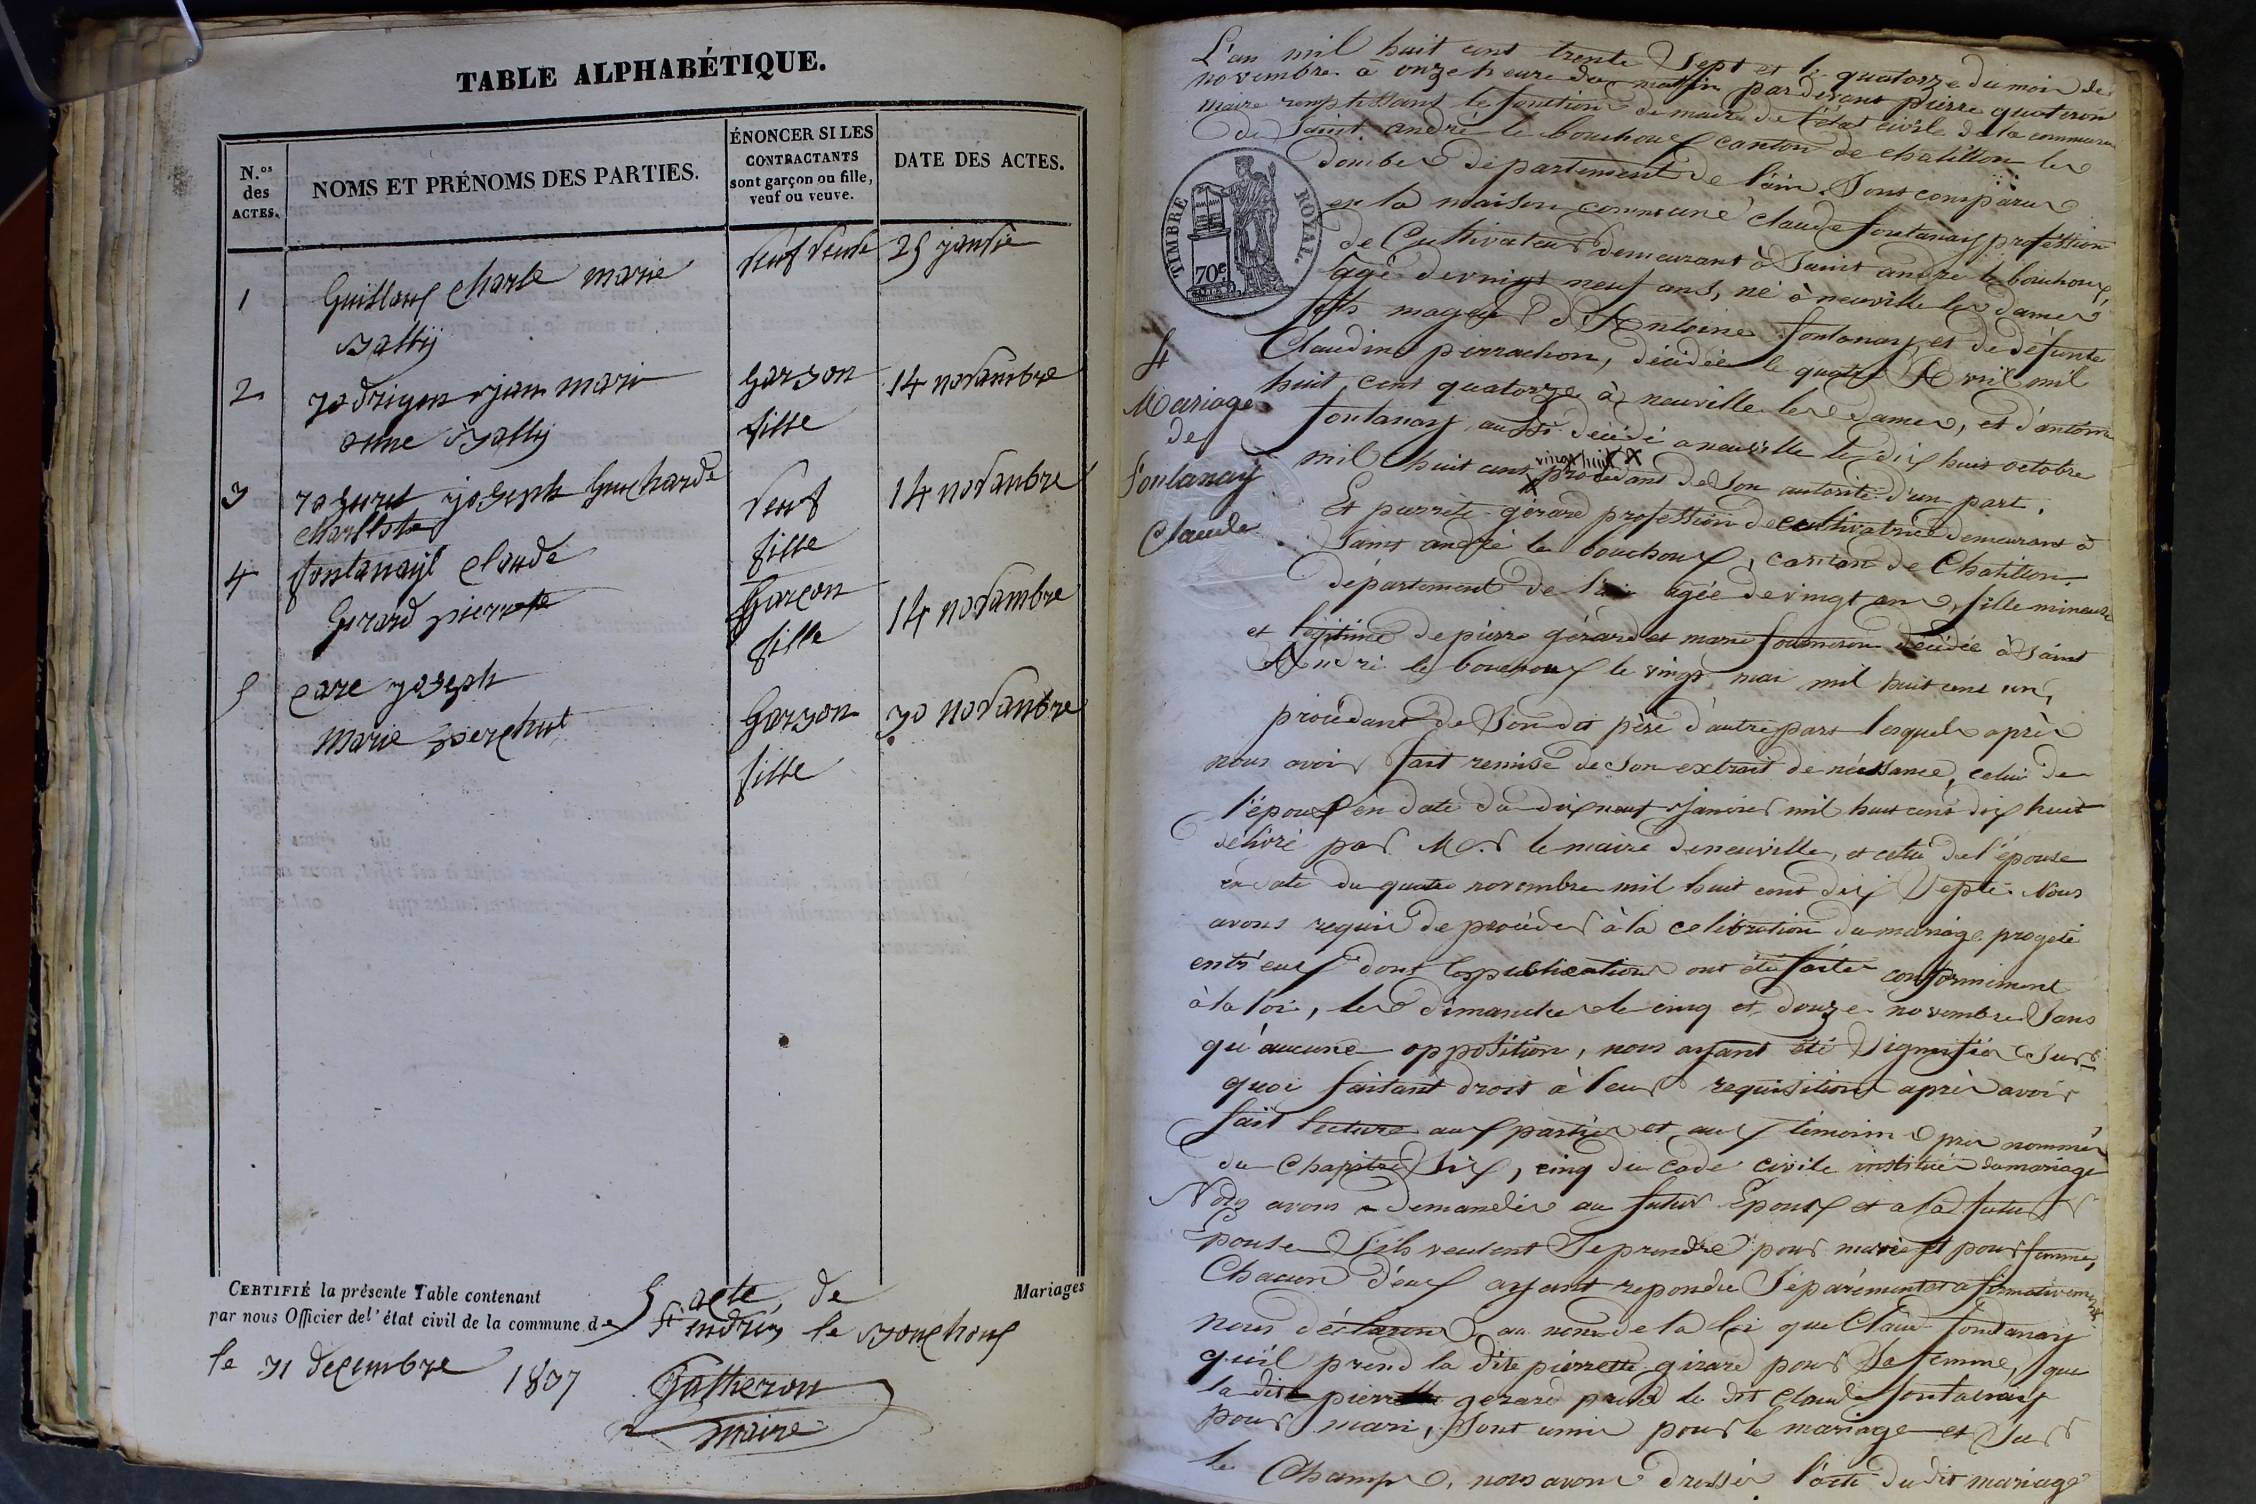 TABLE ALPHABÉTIQUE.
N.os des ACTES.
NOMS ET PRÉNOMS DES PARTIES.
ÉNONCER SI LES
CONTRACTANTS
sont garçon ou fille,
veuf ou veuve.
DATE DES ACTES.
1 charle marie veuf veuve 25
2 jan mari garson 14 novambre
anne fille
3 joseph veuf 14 novanbre
fille
4 fontanayl claude garçon 14 novambre
Girard pierrete fille
5 care joseph garson 30 novanbre
marie fille
CERTIFIÉ la présente Table contenant 5 acte de Mariages
par nous Officier de l'état civil de la commune de St andrés le bouchoux
le 31 decembre 1837
maire
L'an mil huit cent trente sept et le quatorze du mois de
novembre à onze heure du matin par devant pierre quatron
maire remplissant le fonction de maire de l'état civile de la commune
de Saint andré le bouchoux canton de chatillon les
dombes département de l'ain. Sont comparus
TIMBRE ROYAL.
70c
en la maison commune claude fontanay profession
de Cultivateur demeurant à Saint andré le bouchoux,
âgé de vingt neuf ans, né à neuville les dames
fils mageur d'Antoine fontanay et de défunte
Claudine perrachon, décédée le quatre Avril mil
huit cent quatorze à neuville les dames, et d'antoine
4
Mariage
de
fontanay
Claude
fontanay aussi décédé a neuville le dix huit octobre
vingt huit x
mil huit cent x procédant de son autorité d'un part.
Et pierrête gérard profession de cultivatrice demeurant à
Saint andré le bouchoux, canton de Chatillon
département de l'ain agée de vingt ans, fille mineure
et légitime de pierre gérard et marie décédée à Saint
André le bouchoux le vingt mai mil huit cent un,
procédant de Son dit père d'autre part lesquels après
nous avoir fait remise de son extrait de néessance, celui de
l'époux en date du dix neuf janvier mil huit cent dix huit
délivré par Mr le maire de neuville, et celui de l'épouse
en date du quatre novembre mil huit cent dix Septe. Nous
avons requis de procéder à la celibration du mariage progeté
entr'eux dont les publications ont été faites conformément
à la loi, les dimanches le cinq et douze novembre Sans
qu'aucune opposition, nous ayant été Signifiér Sur
quoi faisant droit à leur requisitions après avoir
fait lecture aux partier et aux témoins nommés
du Chapitre Six, cinq du code civile institué du mariage
Nous avons demandés au futur Epoux et a la future
Epouse S'ils veulent Se prendre pour marie et pour femme,
Chacun d'eux ayant repondu Séparément et afirmativement
nous déclarons au nom de la loi que Claude fontanay
qu'il prend la dite pierrette girard pour Sa femme, que
la dite pierrette gerard prend le dit Claude fontanay
pour mari, Sont unis pour le mariage et Sur
le Champ, nous avons dressés l'acte du dit mariage